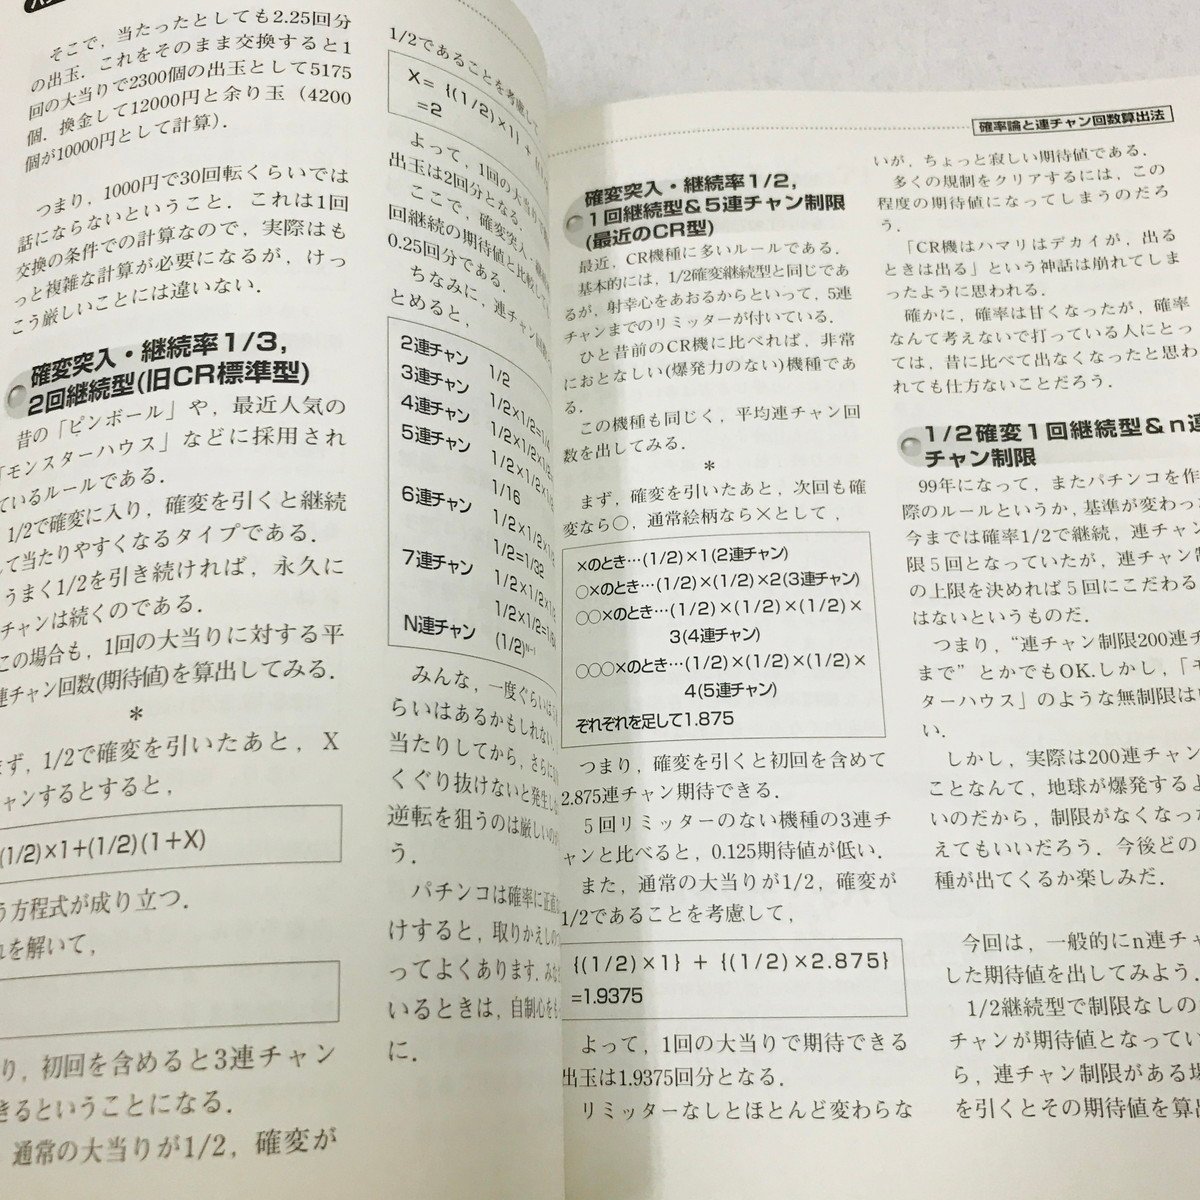 そこで，当たったとしても2.25回分
の出玉．これをそのまま交換すると1
回の大当りで2300個の出玉として5175
個．換金して12000円と余り玉（4200
個が10000円として計算）．
つまり，1000円で30回転くらいでは
話にならないということ．これは1回
交換の条件での計算なので，実際はも
っと複雑な計算が必要になるが，けっ
こう厳しいことには違いない．
確変突入・継続率1/3，
2回継続型(旧CR標準型)
昔の「ピンボール」や，最近人気の
「モンスターハウス」などに採用され
ているルールである．
1/2で確変に入り，確変を引くと継続
して当たりやすくなるタイプである．
うまく1/2を引き続ければ，永久に
チャンは続くのである．
この場合も，1回の大当りに対する平
連チャン回数(期待値)を算出してみる．
＊
まず，1/2で確変を引いたあと，X
チャンするとすると，
(1/2)×1+(1/2)(1+X)
う方程式が成り立つ．
れを解いて，
り，初回を含めると3連チャン
きるということになる．
通常の大当りが1/2，確変が
1/2であることを考慮して
X= {(1/2)×1} +
=2
よって，1回の大当り
出玉は2回分となる．
ここで，確変突入・
回継続の期待値と比較して
0.25回分である．
ちなみに，連チャン
とめると，
2連チャン 1/2
3連チャン 1/2×1/2=1/4
4連チャン 1/2×1/2×1/2
5連チャン 1/2×1/2×1/2
1/16
6連チャン 1/2×1/2×1/2
1/2=1/32
7連チャン 1/2×1/2×1/2
1/2×1/2=1/6
N連チャン (1/2)ᴺ⁻¹
みんな，一度ぐらいは
らいはあるかもしれない．
当たりしてから，さらに
くぐり抜けないと発生し
逆転を狙うのは厳しい
う．
パチンコは確率に正直
けすると，取りかえしの
ってよくあります．みな
いるときは，自制心をも
に．
確率論と連チャン回数算出法
確変突入・継続率1/2，
1回継続型＆5連チャン制限
(最近のCR型)
最近，CR機種に多いルールである．
基本的には，1/2確変継続型と同じであ
るが，射幸心をあおるからといって，5連
チャンまでのリミッターが付いている．
ひと昔前のCR機に比べれば，非常
におとなしい(爆発力のない)機種であ
る．
この機種も同じく，平均連チャン回
数を出してみる．
＊
まず，確変を引いたあと，次回も確
変なら○，通常絵柄なら×として，
×のとき…(1/2)×1(2連チャン)
○×のとき…(1/2)×(1/2)×2(3連チャン)
○○×のとき…(1/2)×(1/2)×(1/2)×
3(4連チャン)
○○○×のとき…(1/2)×(1/2)×(1/2)×
4(5連チャン)
それぞれを足して1.875
つまり，確変を引くと初回を含めて
2.875連チャン期待できる．
5回リミッターのない機種の3連チ
ャンと比べると，0.125期待値が低い．
また，通常の大当りが1/2，確変が
1/2であることを考慮して，
{(1/2)×1} + {(1/2)×2.875}
=1.9375
よって，1回の大当りで期待できる
出玉は1.9375回分となる．
リミッターなしとほとんど変わらな
いが，ちょっと寂しい期待値である．
多くの規制をクリアするには，この
程度の期待値になってしまうのだろ
う．
「CR機はハマリはデカイが，出る
ときは出る」という神話は崩れてしま
ったように思われる．
確かに，確率は甘くなったが，確率
なんて考えないで打っている人にとっ
ては，昔に比べて出なくなったと思わ
れても仕方ないことだろう．
1/2確変1回継続型＆n連
チャン制限
99年になって，またパチンコを作
際のルールというか，基準が変わっ
今までは確率1/2で継続，連チャン
限5回となっていたが，連チャン制
の上限を決めれば5回にこだわる
はないというものだ．
つまり，“連チャン制限200連チ
まで”とかでもOK．しかし，「モ
ターハウス」のような無制限は
い．
しかし，実際は200連チャン
ことなんて，地球が爆発するよ
いのだから，制限がなくなった
えてもいいだろう．今後どの
種が出てくるか楽しみだ．
今回は，一般的にn連チャ
した期待値を出してみよう．
1/2継続型で制限なしの
チャンが期待値となってい
ら，連チャン制限がある場
を引くとその期待値を算出